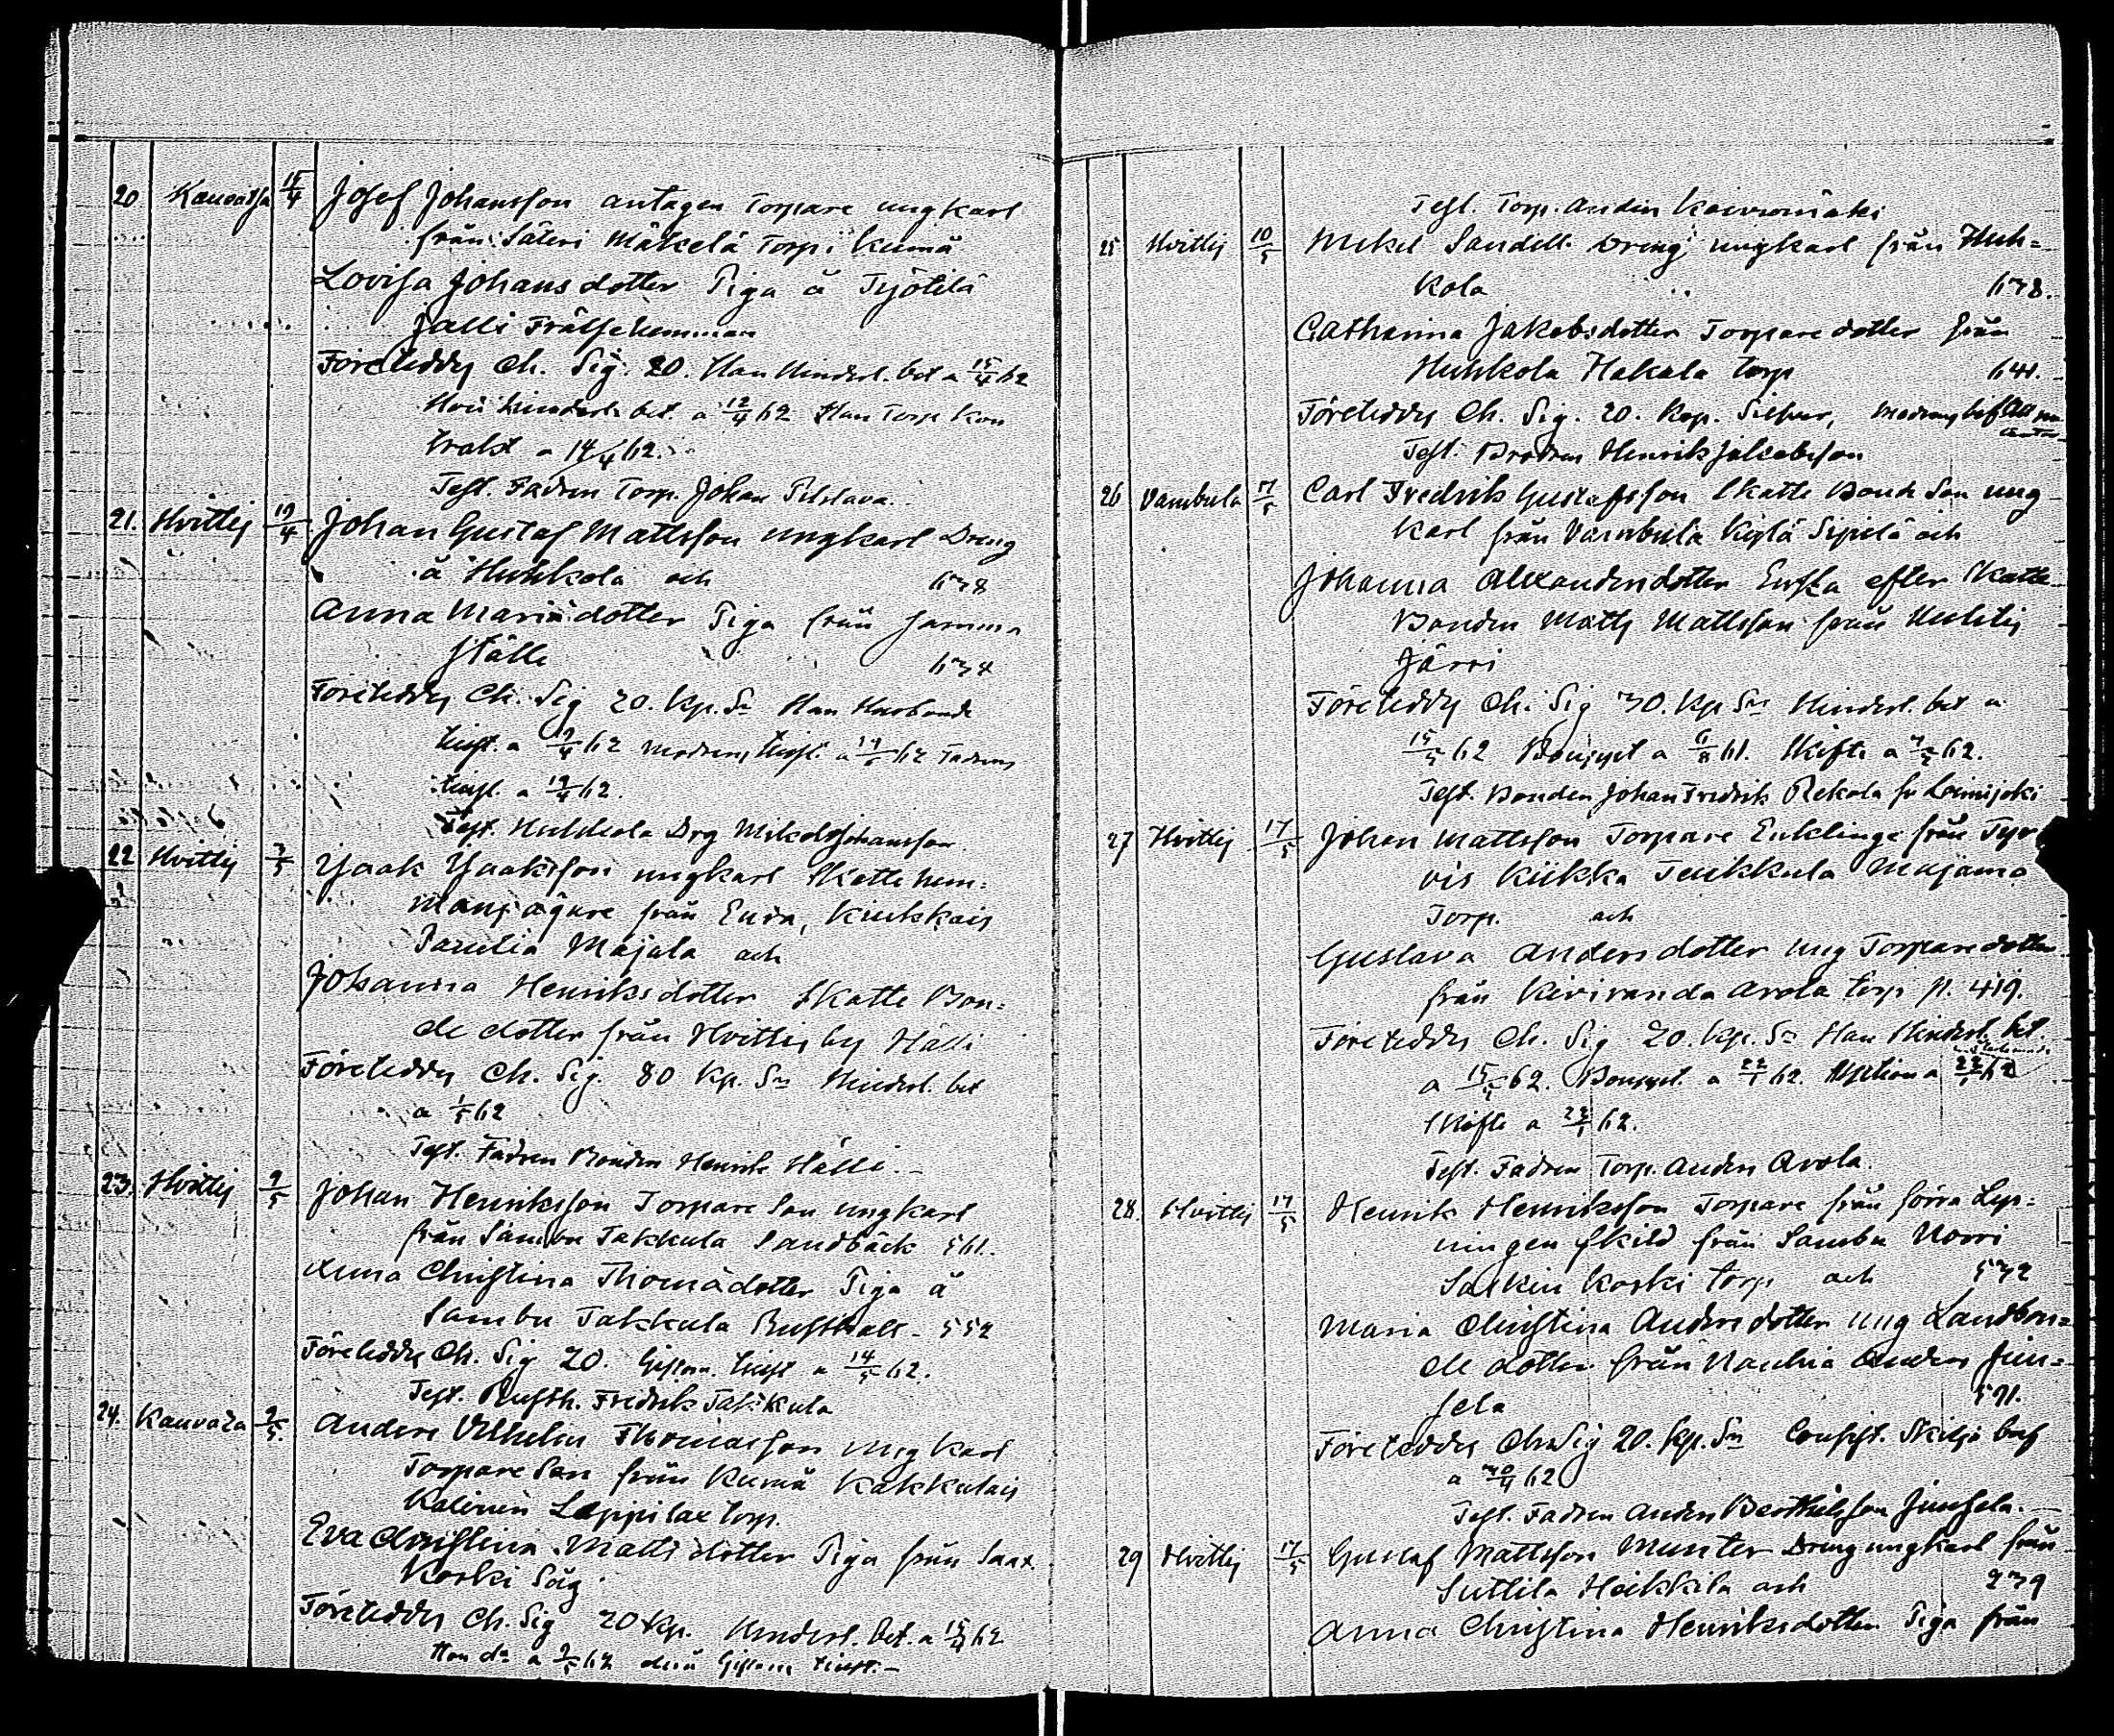 20 Kauvatsa 15/4 Josef Johansson antagen Torpare ungkarl
från Säteri Mäkelä Torp i Kumå
Lovisa Johansdotter Piga å Työtilä
Jalli Frälsehemman
Företeddes Ch. Sig. 20. Han Hinderl. bet a 15/4 62
Hon hinderl. bet. a 12/4 62 Han Torp kon
trakt a 14/4 62.
Test. Fadren Torp. Johan
21. Hvittis 19/4 Johan Gustaf Mattsson ungkarl Dreng
å Huhkola och 638
Anna Mariædotter Piga från Jamma
ställe 634
Företeddes Ch. Sig 20. Kp. Sr Han Husbonde
tillst. a 19/4 62 modrens tillst. a 62 Fadrens
tillst. a 19/4 62.
Test. Huhkola Drg Mikel Johansson.
22 Hvittis 3/5 Isaak Isaaksson ungkarl Skatte hem=
mansägare från Eura, Kiukkais
Panelia Majala och
Johanna Henriksdotter Skatte Bon=
de dotter från Hvittis by Hälli
Företeddes Ch. Sig. 80 Kp. Sr Hinderl. bet
a 1/5 62
Test. Fadren Bonden Henrik Hälli.-
23. Hvittis 9/5 Johan Henriksson Torpare Son ungkarl
från Sambu Takkula Sandbäck 561.
Anna Christina Thomædotter Piga å
Sambu Takkula Rusthåll - 552
Företeddes Ch. Sig 20. Giftom. tillst a 14/5 62.
Test. Rusth. Fredrik Takkula
24. Kauvatsa 9/5 Anders Vilhelm Thomasson ungkarl
Torpare Son från Kumå Kakkulais
Kalinin Leppilax torp.
Eva Christina Mattsdotter Piga från Saax
Koski Såg
Företeddes Ch. Sig 20 Kp. Hinderl. bet. a 15/4 62
Hon do a 9/5 62 derå Giftom tillst.-
Test. Torp. Anders Koivumäki
25 Hvittis 10/5 Mikel Sandell Dreng ungkarl från Huh=
kola 638.
Catharina Jakobsdotter Torpare dotter från
Huhkola Hakala torp 641.
Företeddes Ch. Sig. 20. Kop. Silfver,
Test. Brodren Henrik Jakobsson
26 Vambula 17/5 Carl Fredrik Gustafsson Skatte Bonde Son ung
karl från Vambula Kylä Sipilä och
Johanna Alexandersdotter Enka efter Skatte
Bonden Matts Mattsson från Huhtis
Järvi
Företeddes Ch. Sig 30. Kp Sr Hinderl. bet a
15/5 62 Bouppt a 6/8 61. Skifte a 62.
Test. Bonden Johan Fredrik Rekola fr Loimijoki
27 Hvittis 17/5 Johan Mattsson Torpare Enklinge från Tyr
vis Kiikka Teukkula Mujama
Torp. och
Gustava Andersdotter ung Torpare dotter
från Kiviranda Avola torp p. 419.
Företeddes Ch. Sig 20. Kp. Sr Han Hinderl. bet.
a 15/5 62. Bouppt. a 22/1 62. a 22/1 62
Skifte a 22/1 62.
Test. Fadren Torp. Anders Avola.
28. Hvittis 17/5 Henrik Henriksson Torpare från förra Lys=
ningen skild från Sambu Norri
Saikin Koski torp och 532
Maria Christina Andersdotter ung Landbon=
de dotter från Nanhia Anders Jun=
sela 591.
Företeddes Ch. Sig 20. Kp. Sr Consist. Skiljo bref
a 30/4 62
Test. Fadren Anders Berthilsson Junsela.-
29 Hvittis 17/5 Gustaf Mattsson Munter Dreng ungkarl från
Suttila Heikkila och 239
Anna Christina Henriksdotter Piga från